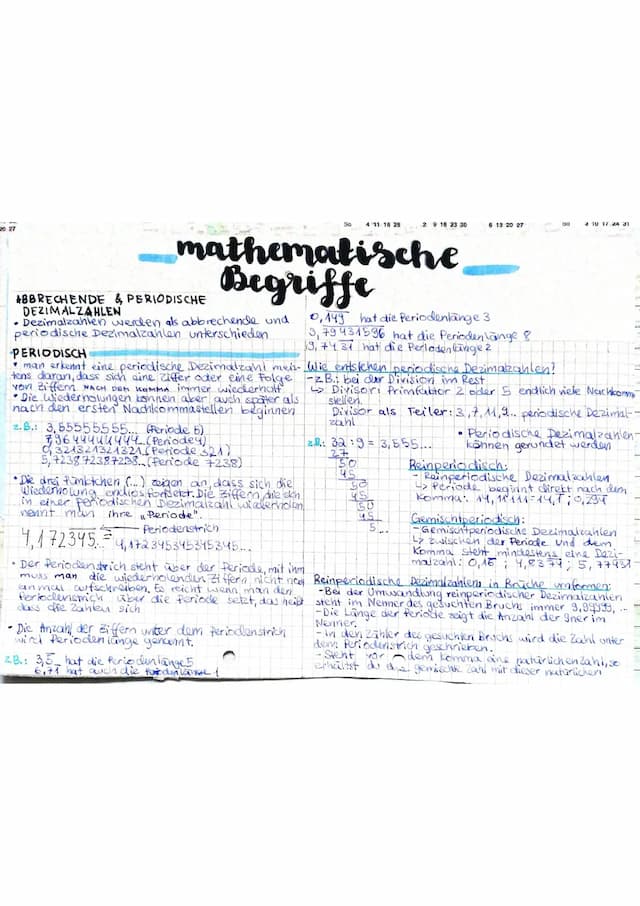 mathematische
Begriffe
ABBRECHENDE & PERIODISCHE
DEZIMALZAHLEN
• Dezimalzahlen werden als abbrechende und
periodische Dezimalzahlen unterschieden
PERIODISCH
• man erkennt eine periodische Dezimalzahl meis-
tens daran, dass sich eine Ziffer oder eine Folge
von Ziffern NACH DER KOMMA immer wiederholt
• Die Wiederholungen können aber auch später als
nach den ersten Nachkommastellen beginnen
z.B.: 3,55555555... (Periode 5)
7,9644444444... (Periode 4)
0,321321321321 (Periode 321)
5,723872387238... (Periode 7238)
• Die drei Pünktchen (...) zeigen an, dass sich die
Wiederholung endlos fortsetzt. Die Ziffern, die sich
in einer periodischen Dezimalzahl wiederholen
nennt man ihre „Periode".
Periodenstrich
4,172345... = 4,172345345345345...
• Der Periodenstrich steht über der Periode, mit ihm
muss man die wiederholenden Ziffern nicht noch
einmal aufschreiben. Es reicht wenn man den
Periodenstrich über die Periode setzt, das heißt
dass die Zahlen sich
• Die Anzahl der Ziffern unter dem Periodenstrich
wird Periodenlänge genannt.
z.B.: 3,5 hat die Periodenlänge
6,71 hat auch die Periodenlänge 1
0,149 hat die Periodenlänge 3
3,79431596 hat die Periodenlänge 8
9,7431 hat die Periodenlänge 2
Wie entstehen periodische Dezimalzahlen?
- z.B.: bei der Division im Rest
↳ Divisor: Primfaktor 2 oder 5 endlich viele Nachkomm
stellen
Divisor als Teiler: 3, 7, 11, 9... periodische Dezimal-
zahl
• Periodische Dezimalzahlen
können gerundet werden
z.B.: 32 : 9 = 3,555...
27
50
45
50
45
50
45
5...
Reinperiodisch:
- Reinperiodische Dezimalzahlen
↳ Periode beginnt direkt nach dem
Komma: 14,11111 = 14,1 ; 0,297
Gemischtperiodisch:
- Gemischtperiodische Dezimalzahlen
↳ zwischen der Periode und dem
Komma steht mindestens eine Dezi-
malzahl: 0,16 ; 4,8374 ; 5,77431
Reinperiodische Dezimalzahlen in Brüche umformen:
- Bei der Umwandlung reinperiodischer Dezimalzahlen
steht im Nenner des gesuchten Bruchs immer 9,99,999, ...
- Die Länge der Periode zeigt die Anzahl der 9ner im
Nenner.
- In den Zähler des gesuchten Bruchs wird die Zahl unter
dem Periodenstrich geschrieben.
- Steht vor dem Komma eine natürlichen Zahl, so
erhältst du eine gemischte Zahl mit dieser natürlichen